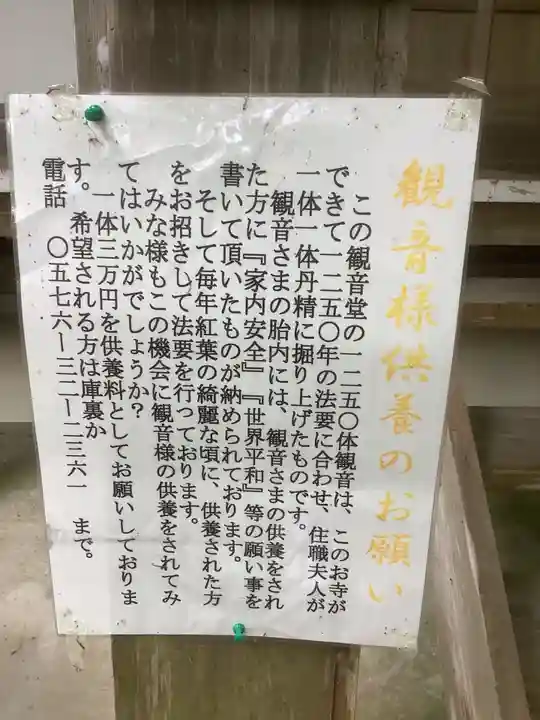 観音様供養のお願い
この観音堂の一二五〇体観音は、このお寺が
できて一二五〇年の法要に合わせ、住職夫人が
一体一体丹精に掘り上げたものです。
観音さまの胎内には、観音さまの供養をされ
た方に『家内安全』『世界平和』等の願い事を
書いて頂いたものが納められております。
そして毎年紅葉の綺麗な頃に、供養された方
をお招きして法要を行っております。
みな様もこの機会に観音様の供養をされてみ
てはいかがでしょうか？
一体三万円を供養料としてお願いしておりま
す。希望される方は庫裏か
電話　〇五七六ー三二ー二三六一　まで。